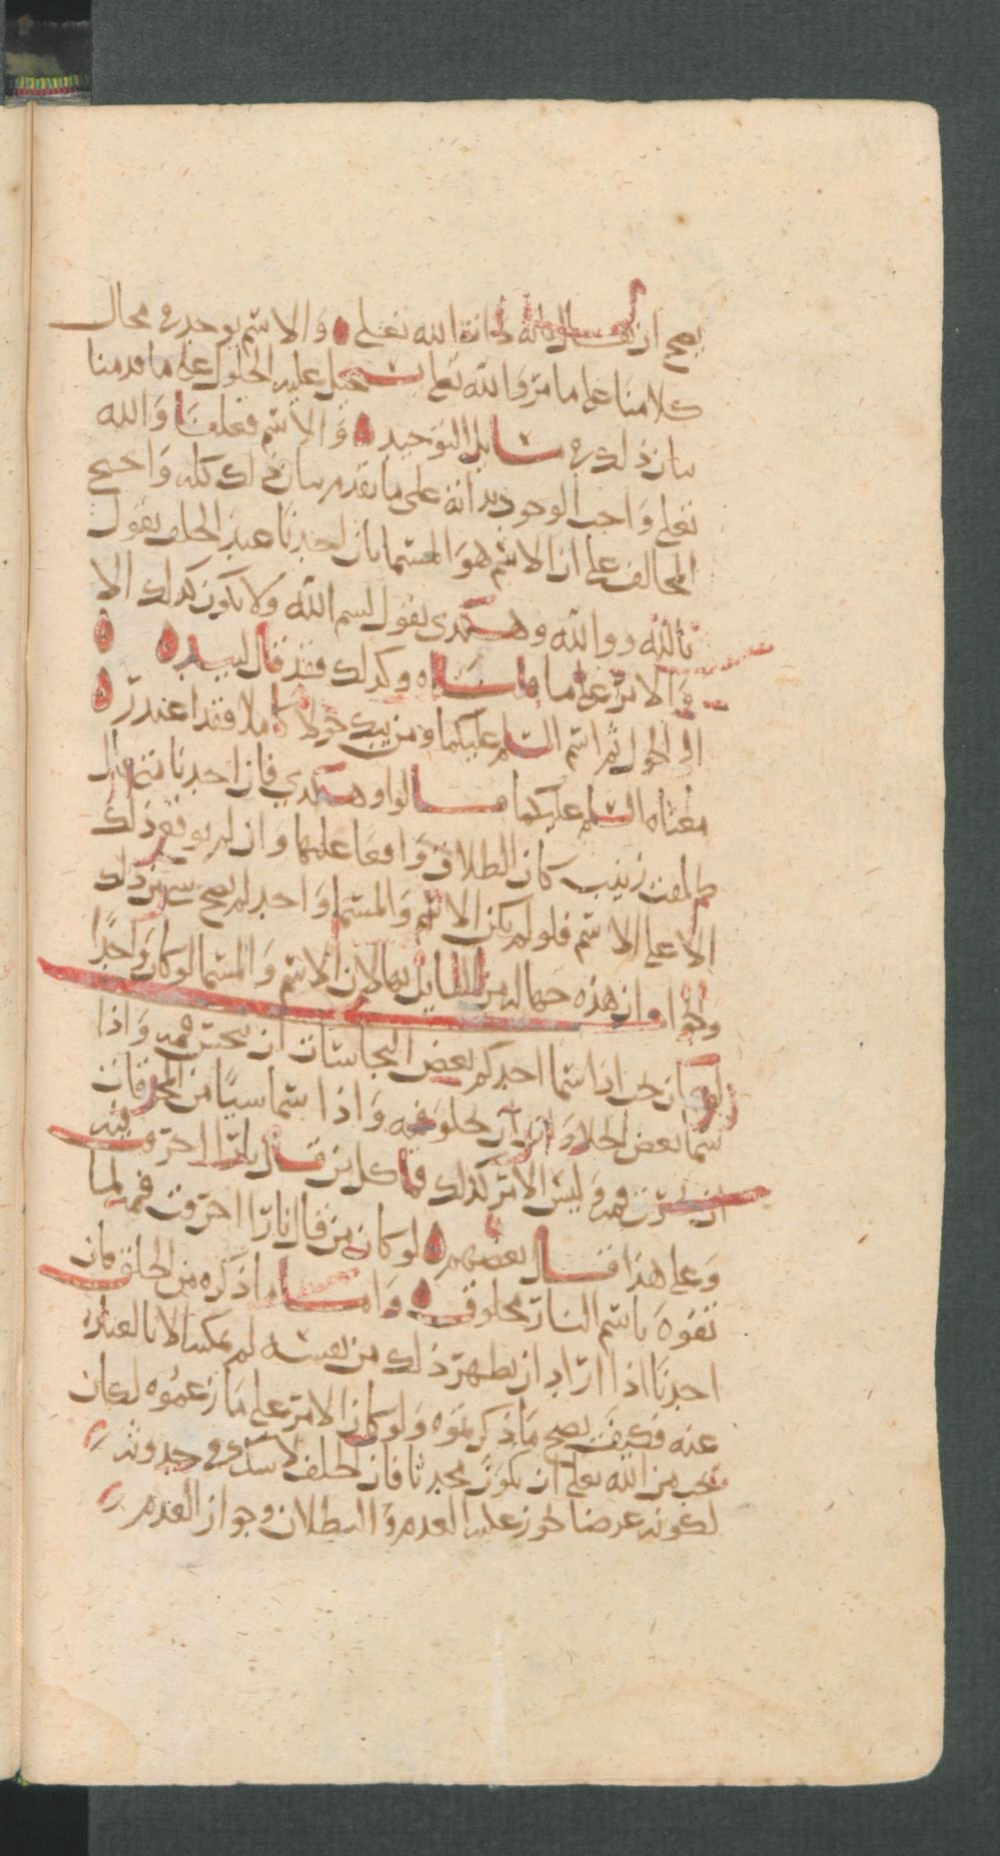 يصح ان يقال بانه ذات الله تعلى والاسم يوجد في محال
كلامنا على ما مر والله تعلى يستحيل عليه الحلول على ما قدمنا
بيان ذلك في مسايل التوحيد والاسم فعلنا والله
تعلى واجب الوجود بذاته على ما تقدم بيان ذلك كله واحتج
المخالف على ان الاسم هو المسما بان احدنا عند الحلف يقول
تالله ووالله وهكذى يقول بسم الله ولا يكون كذلك الا
والامر على ما قلناه وكذلك فقد قال لبيد
الى الحول ثم اسم السلم عليكما ومن يبك حولا كاملا فقد اعتذر
معناه السلم عليكما قالوا وهكذى فان احدنا متى قال
طلقت زينب كان الطلاق واقعا عليها وان لم يوقع ذلك
الا على الاسم فلو لم يكن الاسم والمسما واحد لم يصح شي من ذلك
والجواب ان هذه جهالة من القايل بها لان الاسم والمسما لو كان واحدا
لوجب ان من اذا سما احدكم بعض النجاسات ان ينجس فمه واذا
سما بعض الحلاوات ان يحلو فمه واذا سما شيئا من المحرقات
ان يحترق فمه وليس الامر كذلك فما كل من قال نارا احترق فمه
وعلى هذا قال بعضهم لو كان من قال نارا احترقت فمه لما
تفوه باسم النار مخلوق واما ما ذكره من الحلف فان
احدنا اذا اراد ان يظهر ذلك من نفسه لم يمكنه الا بالعبارة
عنه فكيف يصح ما ذكرتموه ولو كان الامر على ما زعموه لكان
يجب من الله تعلى ان يكون محدثا فان الحلف لا شك في حدوثه
لكونه عرضا يجوز عليه العدم والبطلان وجواز العدم